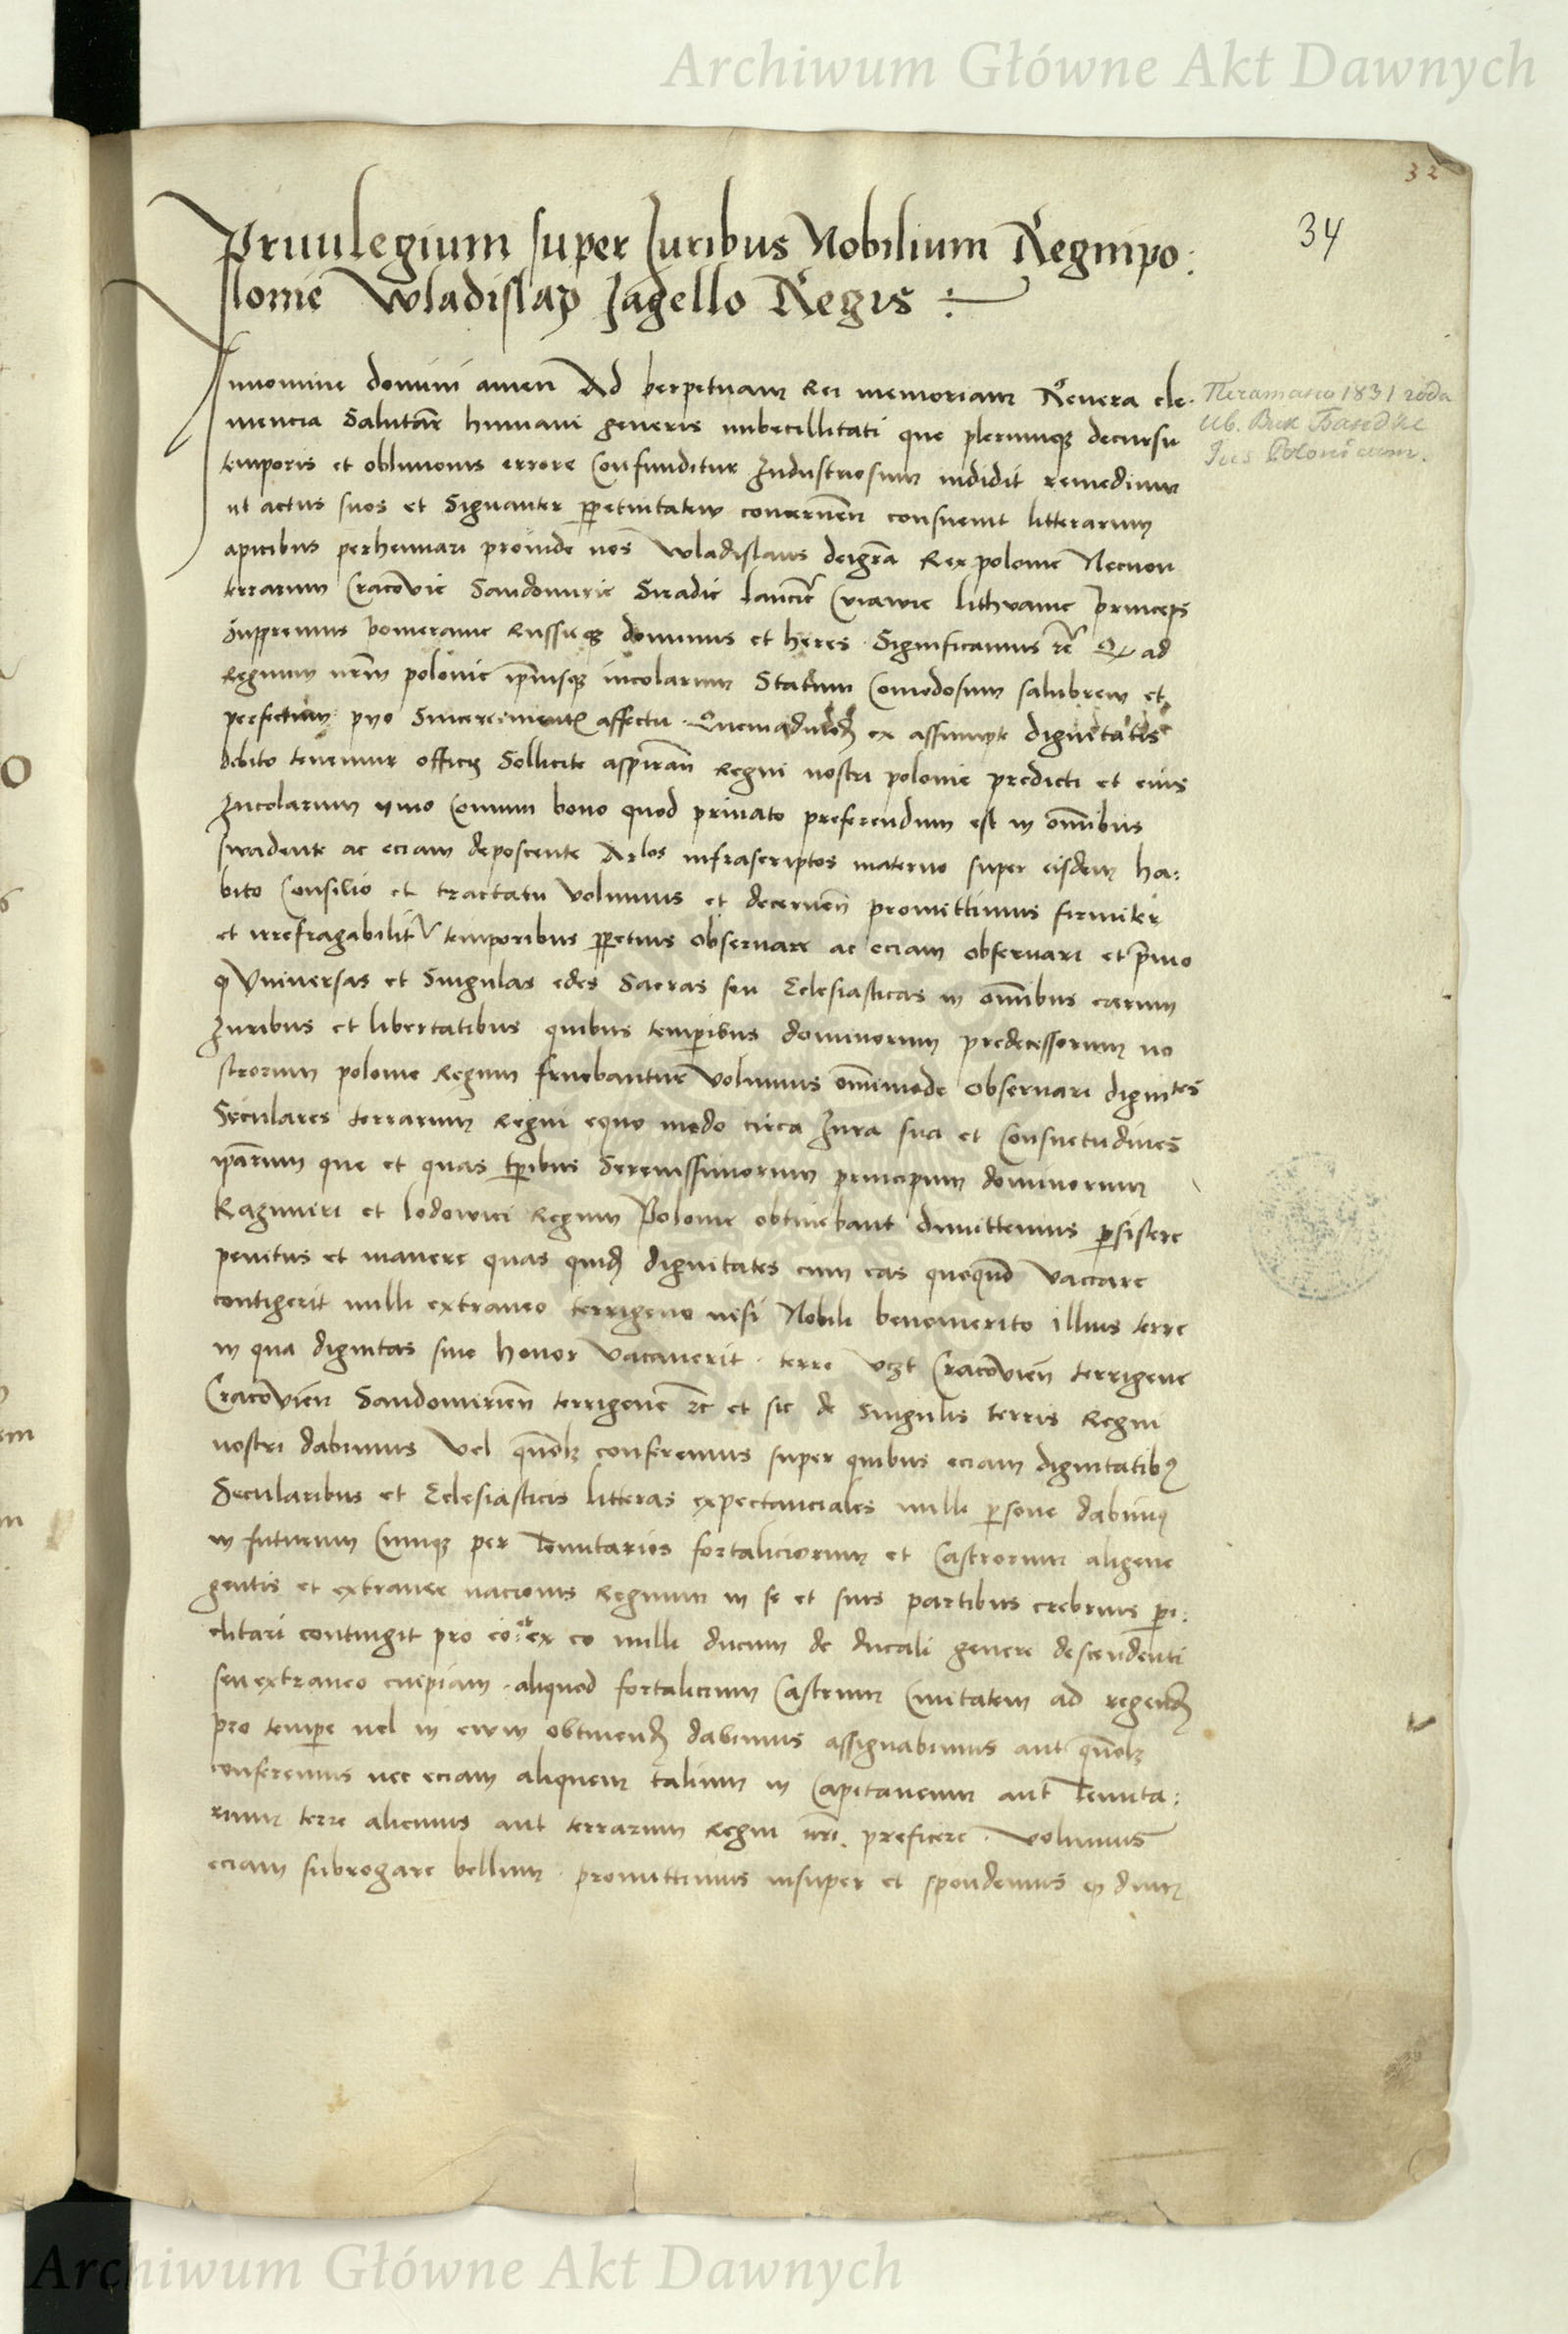 Archiwum Główne Akt Dawnych
32
34
Priuilegium super Juribus Nobilium Regnipo:
lonie Wladislay Jagello Regis :
Innomine domini amen Ad perpetuam Rei memoriam Reuera cle-
mencia Salutar humani generis imbecillitati que plerumque decursu
temporis et obliuionis errore Confunditur Industriosum indidit remedium
ut actus suos et Signanter perpetuitatem concernen consueuit litterarum
apicibus perhennari proinde nos Wladislaus deigra Rex polonie Necnon
terrarum Cracovie Sandomirie Siradie lancicie Cuiawie lithvanie princeps
Suppremus pomeranie Russieque dominus et heres Significamus etc Quod ad
Regnum nrm polonie ipsiusque incolarum Statum Comodosum salubrem et
perfectum pyo Sincere mentis affectu Quemadmodum ex assumpte dignitatis
debito tenemur officii Sollicite aspiran Regni nostri polonie predicti et eius
Incolarum ymo Comuni bono quod priuato preferendum est in omnibus
swadente ac eciam deposcente Arlos infrascriptos maturo super eisdem ha:
bito Consilio et tractatu Volumus et decernen promittimus firmiter
et irrefragabiliter temporibus perpetuis obseruare ac eciam obseruari et primo
quod Vniuersas et Singulas edes Sacras seu Eclesiasticas in omnibus earum
Juribus et libertatibus quibus temporibus dominorum predecessorum no
strorum polonie Regum fruebantur Volumus omnimode obseruari dignites
Seculares terrarum Regni equo modo circa Jura sua et Consuetudines
ipsarum que et quas temporibus Serenissimorum principum dominorum
Kazimiri et lodowici Regum Polonie obtinebant dimittemus persistere
penitus et manere quas quidem dignitates cum eas quoquo modo Vaccare
contigerit nulli extraneo terrigeno nisi Nobili benemerito illius terre
in qua dignitas siue honor Vacauerit terre vczt Cracovien terrigene
Cracovien Sandomirien terrigene etc et sic de singulis terris Regni
nostri dabimus Vel quomodolibet conferemus super quibus eciam dignitatibus
Secularibus et Eclesiasticis litteras expectanciales nulli persone dabimus
in futurum Cumque per Tenutarios fortaliciorum et Castrorum aligene
gentis et extranee nacionis Regnum in se et suis partibus crebrius peri:
clitari contingit pro eo et ex eo nulli ducum de ducali genere descendenti
seu extraneo cuipiam aliquod fortalicium Castrum Ciuitatem ad regendum
pro tempore uel in ewm obtinendum dabimus assignabimus aut quomodolibet
conferemus nec eciam aliquem talium in Capitaneum aut Tenuta:
rium terre alicuius aut terrarum Regni nri preficere Volumus
eciam subrogare bellum promittimus insuper et spondemus quod dum
1831 года
Jus Polonicum.
Archiwum Główne Akt Dawnych